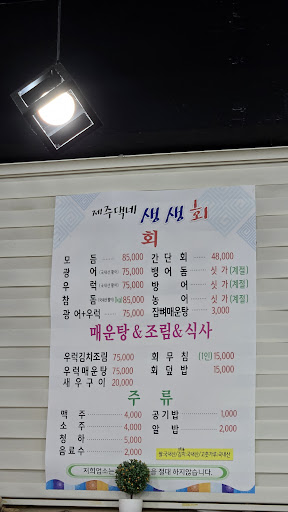 제주댁네 생생회
회
모 둠 85,000
광 어 75,000
우 럭 75,000
참 돔 85,000
광어+우럭 75,000
간단회 48,000
뱅어돔 싯가(계절)
방 어 싯가(계절)
농 어 싯가(계절)
잡뼈매운탕 3,000
매운탕&조림&식사
우럭김치조림 75,000
우럭매운탕 75,000
새우구이 20,000
회무침 (1인)15,000
회덮밥 15,000
주 류
맥 주 4,000
소 주 4,000
청 하 5,000
음료수 2,000
공기밥 1,000
알 밥 2,000
저희업소는 을 절대 하지않습니다.